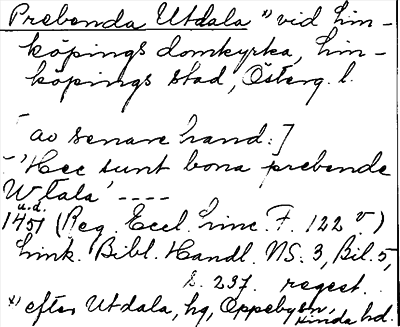 Prebenda Utdala x) vid Lin-
köpings domkyrka, Lin-
köpings stad, Österg. l.
[av senare hand:]
- 'Hec sunt bona prebende
Wtala' ----
u.d.
1451 (Reg. Eccl. Linc. F. 122 v)
Link. Bibl. Handl. NS. 3, Bil. 5,
s. 237. regest.
x) efter Utdala, hg, Oppebyen, Kinda hd.